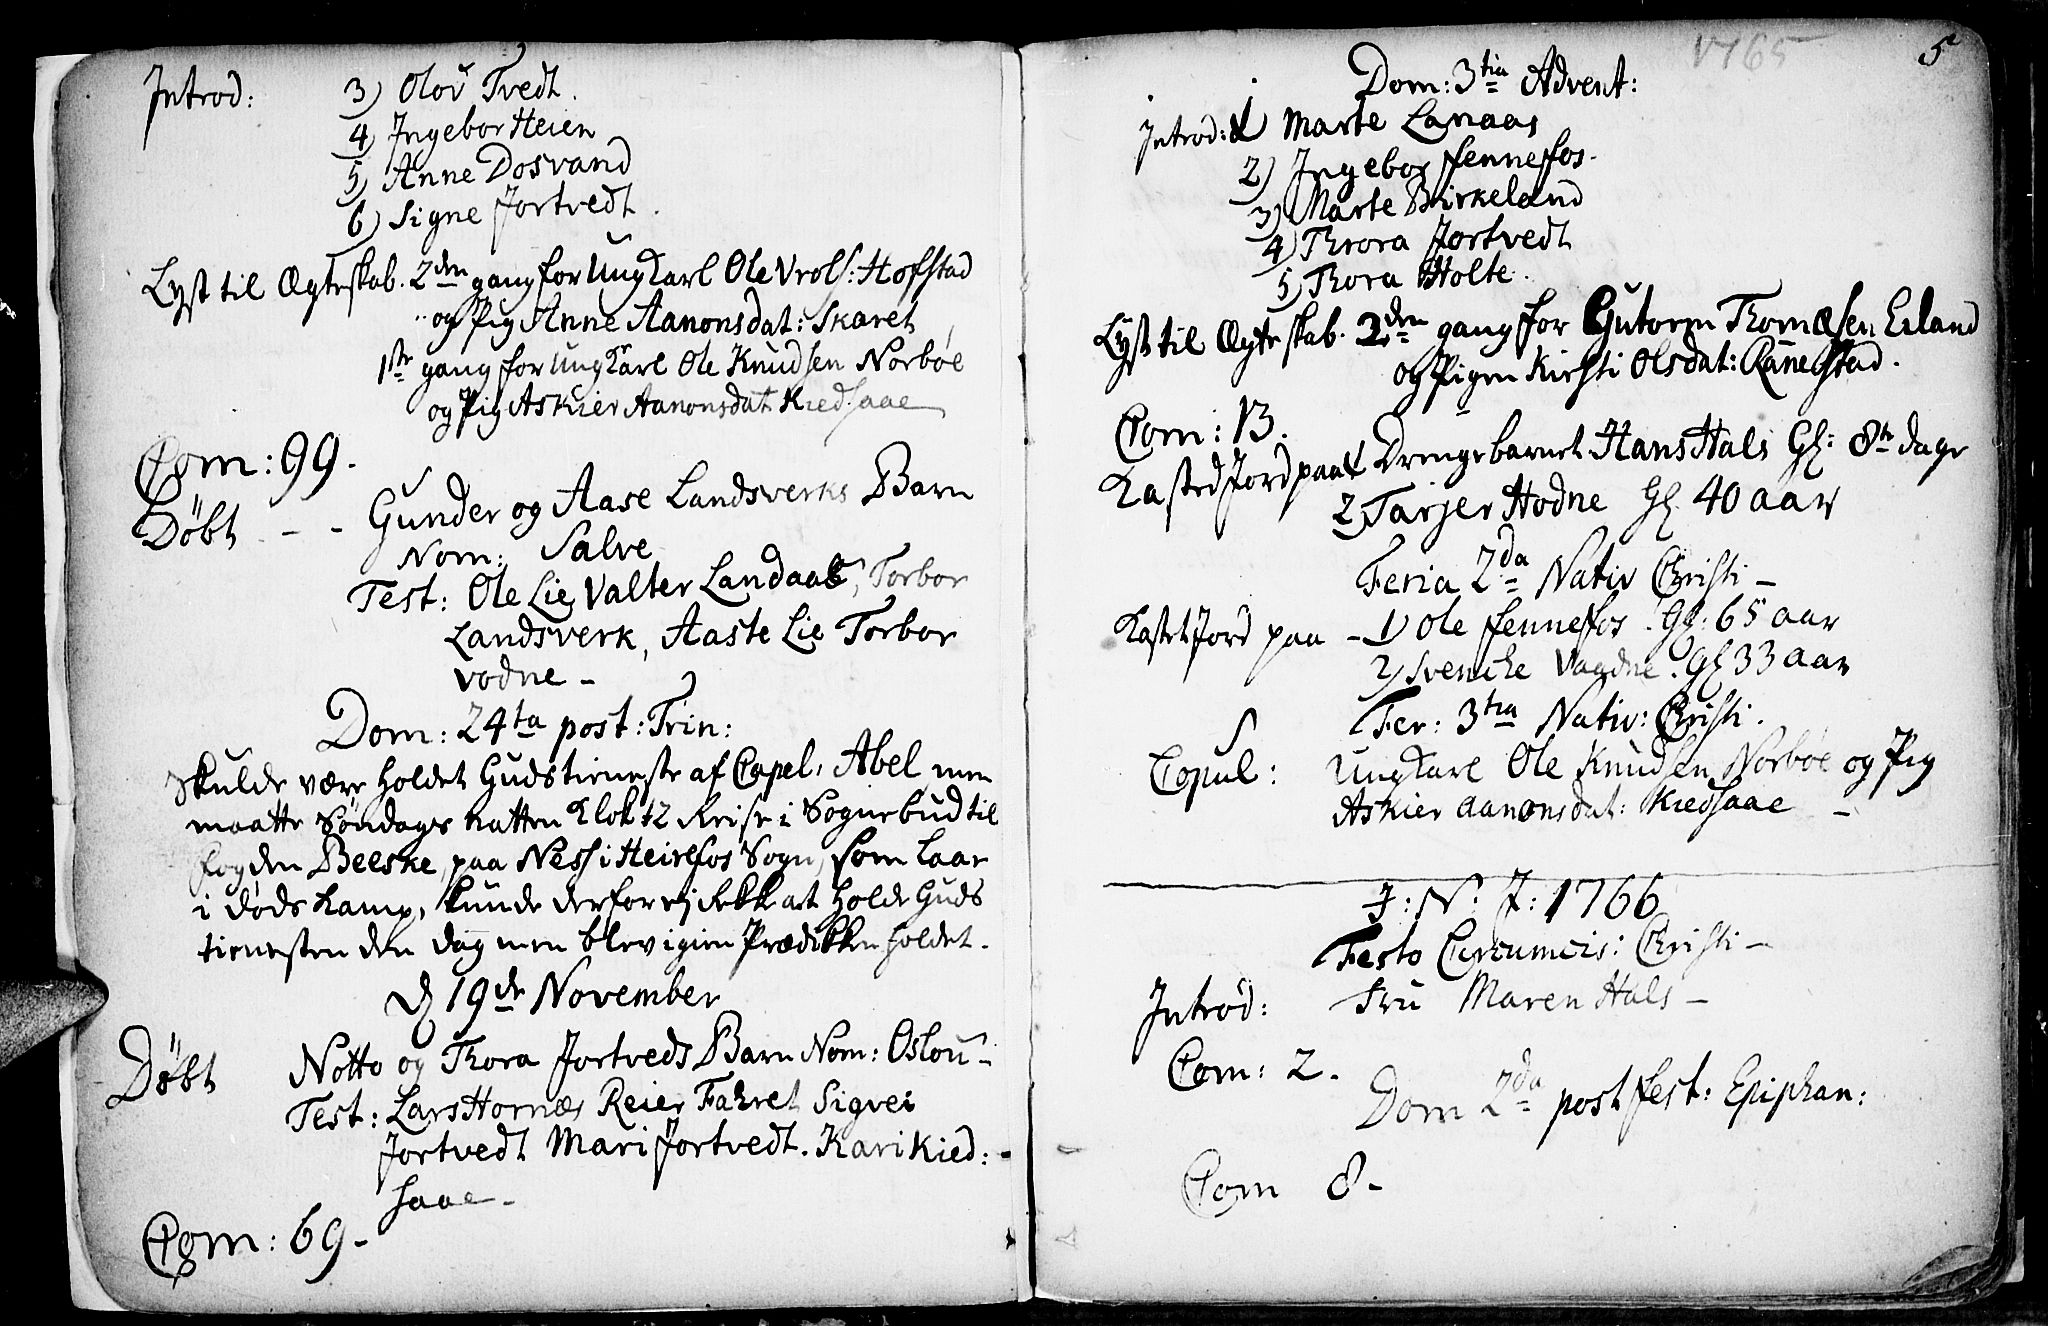 Introd: 3) Olov Tvedt.
4) Ingebor Heien
5) Anne Dosvand
6) Signe Jortvedt.
Lyst til Ægteskab. 2den gang for Ung Karl Ole Vrols: Hofstad
og Pig Anne Aanonsdat: Skaret
1ste gang for Ung Karl Ole Knudsen Norbøe
og Pig Askier Aanonsdat Kiedsaae
Com: 99.
Døbt - - Gunder og Aase Landsverks Barn
Nom: Salve
Test: Ole Lie, Valter Landaas, Torbor
Landsverk, Aaste Lie Torbor
vodne -
Dom: 24ta post: Trin:
Skulde være holdet Gudstieneste af Capel: Abel, men
maatte Søndags natten Klok 12 Reise i Sognebud til
fogden Beeske, paa Ness i Heirefos Sogn, som laae
i døds kamp, kunde derfor ej Rekke at holde Guds
tienesten den dag men blev igien Prædikken holdet.
D 19de November
Døbt Notto og Thora Jortveds Barn Nom: Oslou -
Test: Lars Hornes Reier Fahret Sigvei
Jortvedt Mari Jortvedt. Kari Kied: -
saae -
Com: 69 -
1765 5
Dom: 3tia Advent:
Introd: 1 Marte Lanaas
2) Ingebor fennefos.
3) Marte Birkeland
4) Thora Jortvedt
5) Thora Holte.
Lyst til Ægteskab. 2den gang for Gutorm Thomæsen Erland
og Pigen Kirsti Olsdat: Rannestad.
Com: 13.
Kasted Jord paa 1 Drengebarnet Hans Hals Gl: 8te dage
2, Tarjer Hodne Gl 40 aar
Feria 2da Nativ Christi -
Kastet Jord paa - 1) Ole fennefos. Gl: 65 aar
2) Svenche Vaadne. Gl 33 aar
Fer: 3tia Nativ: Christi.
Copul: Ung Karl Ole Knudsen Norbøe og Pig
Askier Aanonsdat: Kiedsaae -
J: N: J: 1766
Festo Circumcis: Christi -
Introd: Fru Maren Hals -
Com: 2.
Dom 2da post fest: Epiphan:
Com 8 -